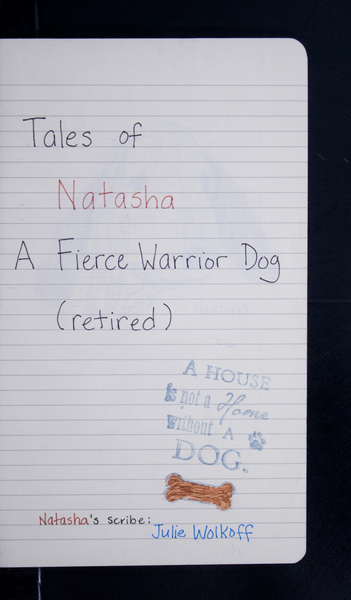 Tales of
Natasha
A Fierce Warrior Dog
(retired)
A HOUSE
is not a Home
without A
DOG.
Natasha's scribe:
Julie Wolkoff